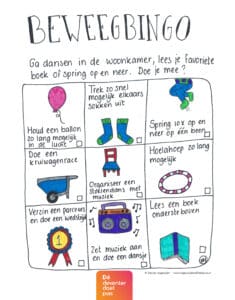 BEWEEGBINGO
Ga dansen in de woonkamer, lees je favoriete
boek of spring op en neer. Doe je mee?
Houd een ballon
zo lang mogelijk
in de lucht
Trek zo snel
mogelijk elkaars
sokken uit
Spring 10x op en
neer op één been
Doe een
kruiwagenrace
Organiseer een
stoelendans met
muziek
Hoelahoep zo lang
mogelijk
Verzin een parcours
en doe een wedstrijd
1
Zet muziek aan
en doe een dansje
Lees een boek
ondersteboven
De
deventer
doet
pas